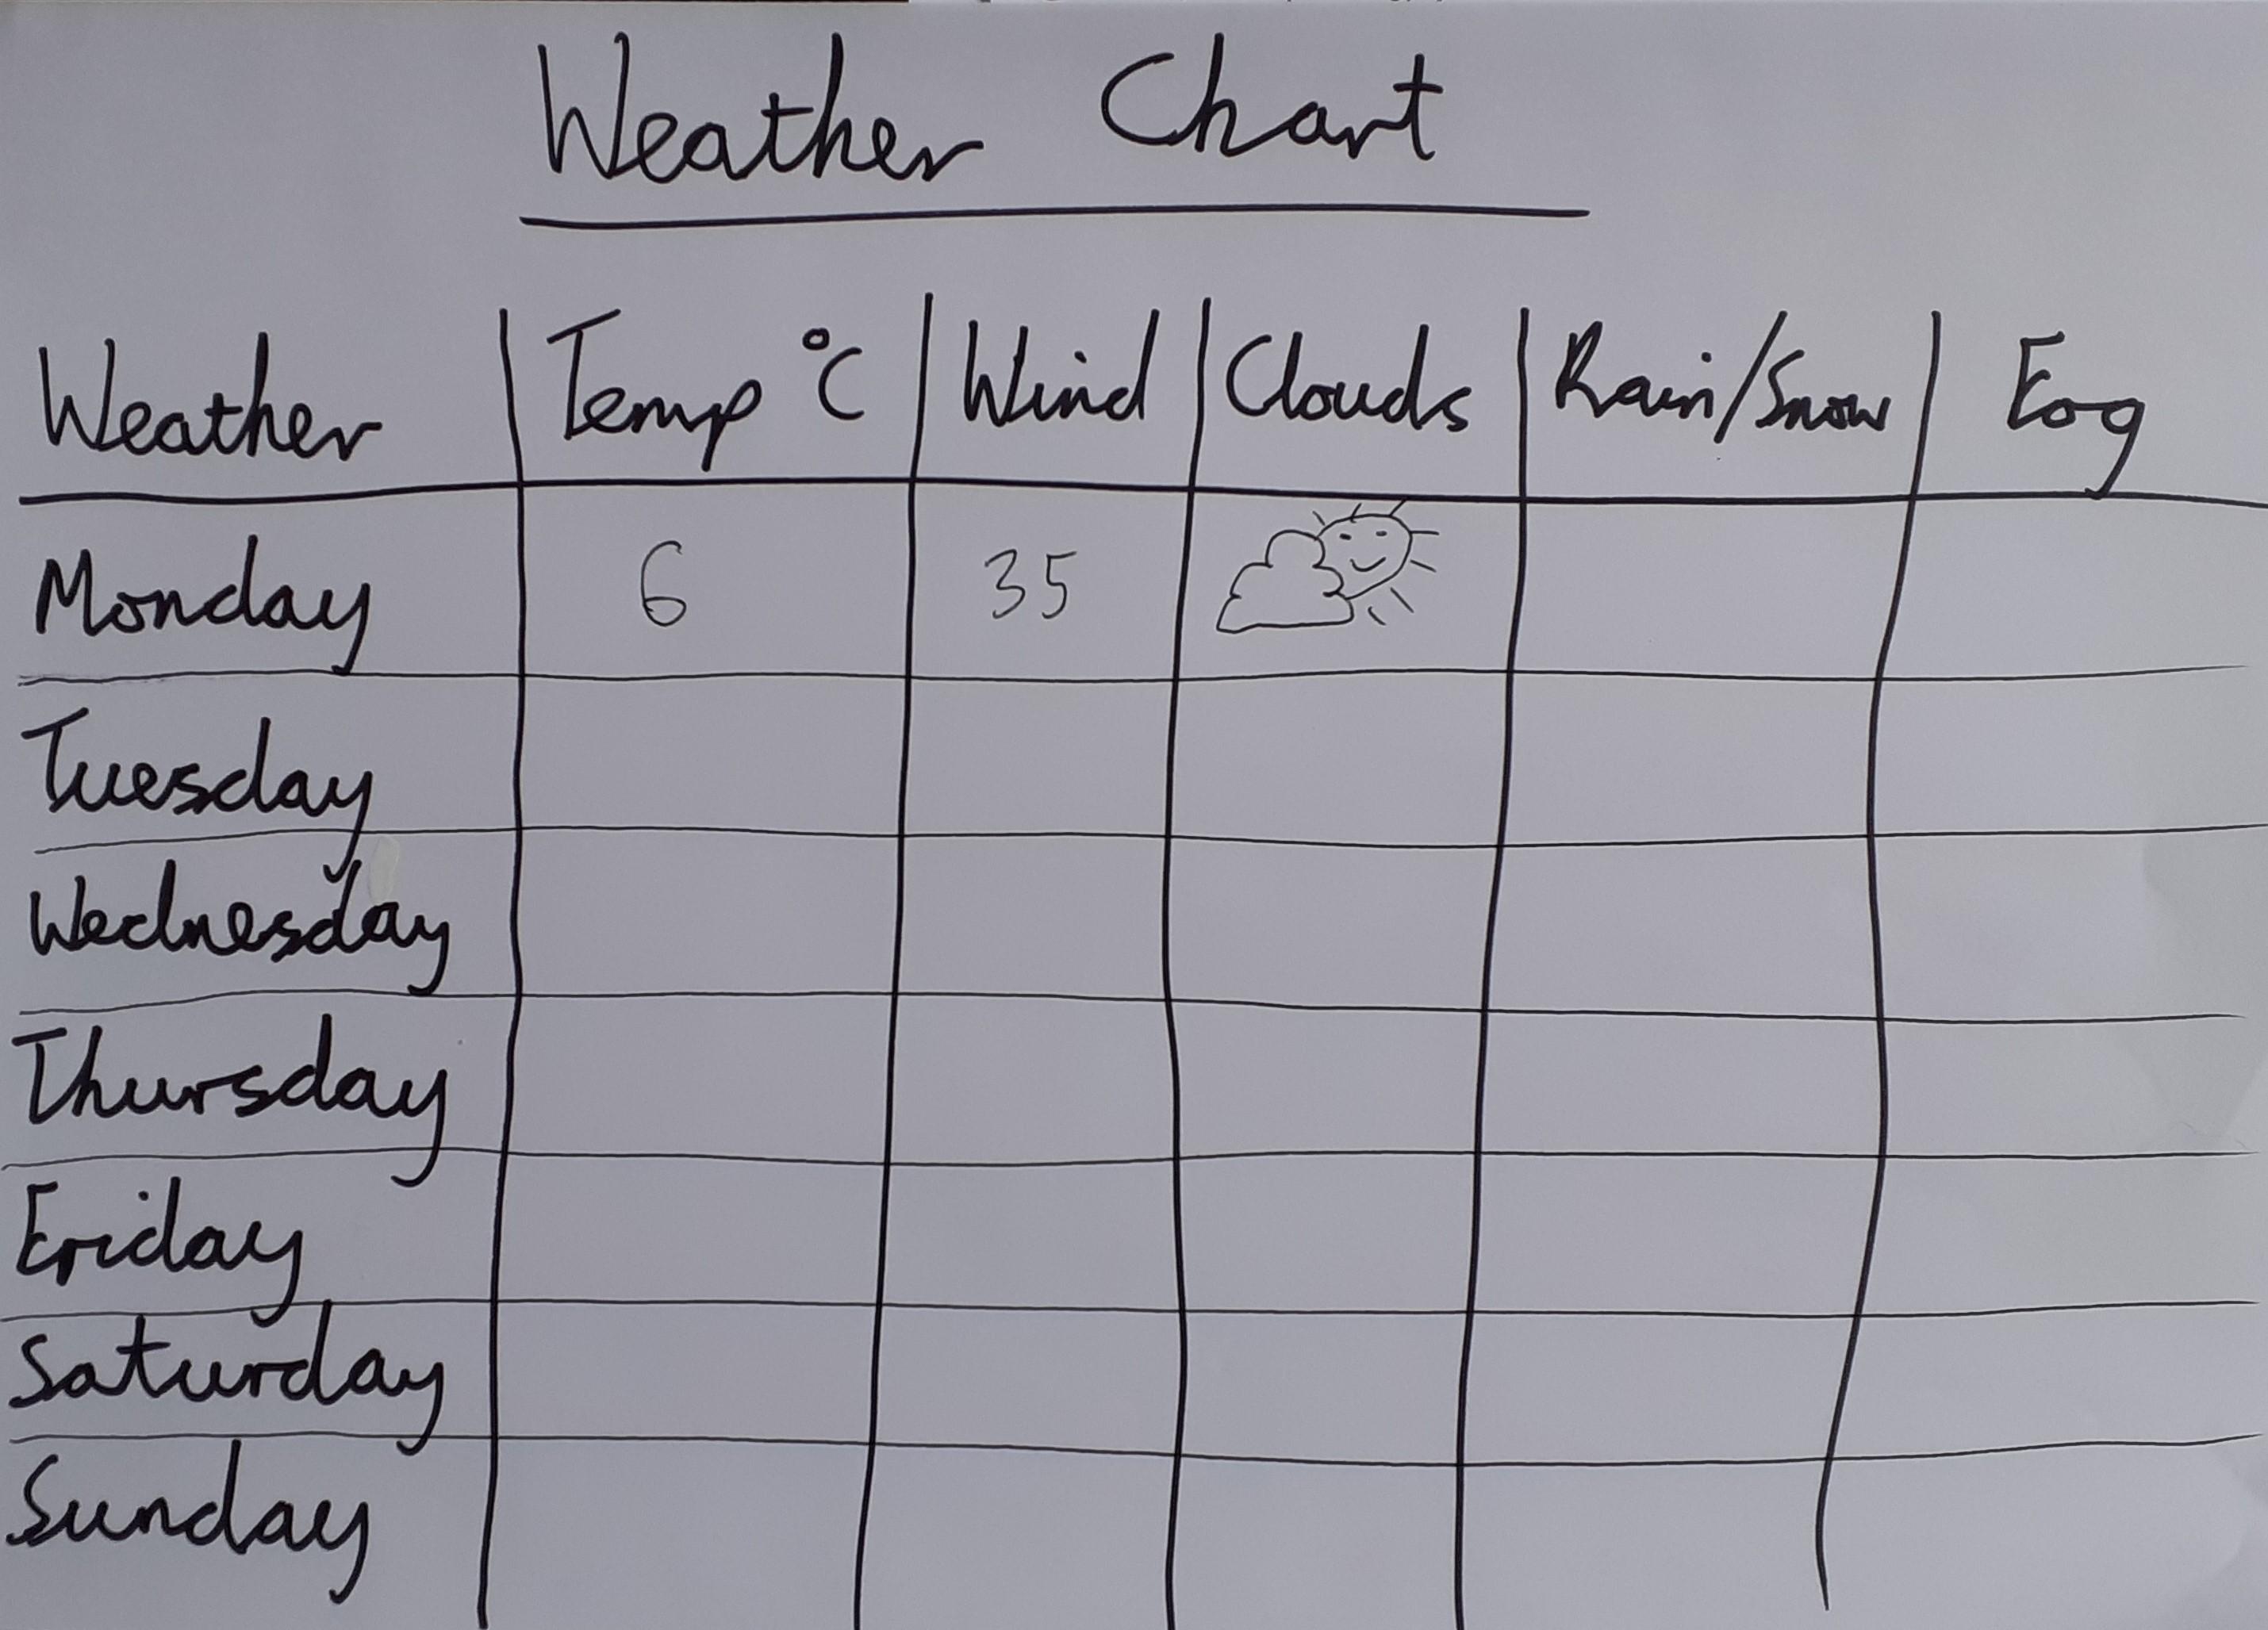 Weather Chart
Weather Temp °C Wind Clouds Rain/Snow Fog
Monday 6 35
Tuesday
Wednesday
Thursday
Friday
Saturday
Sunday